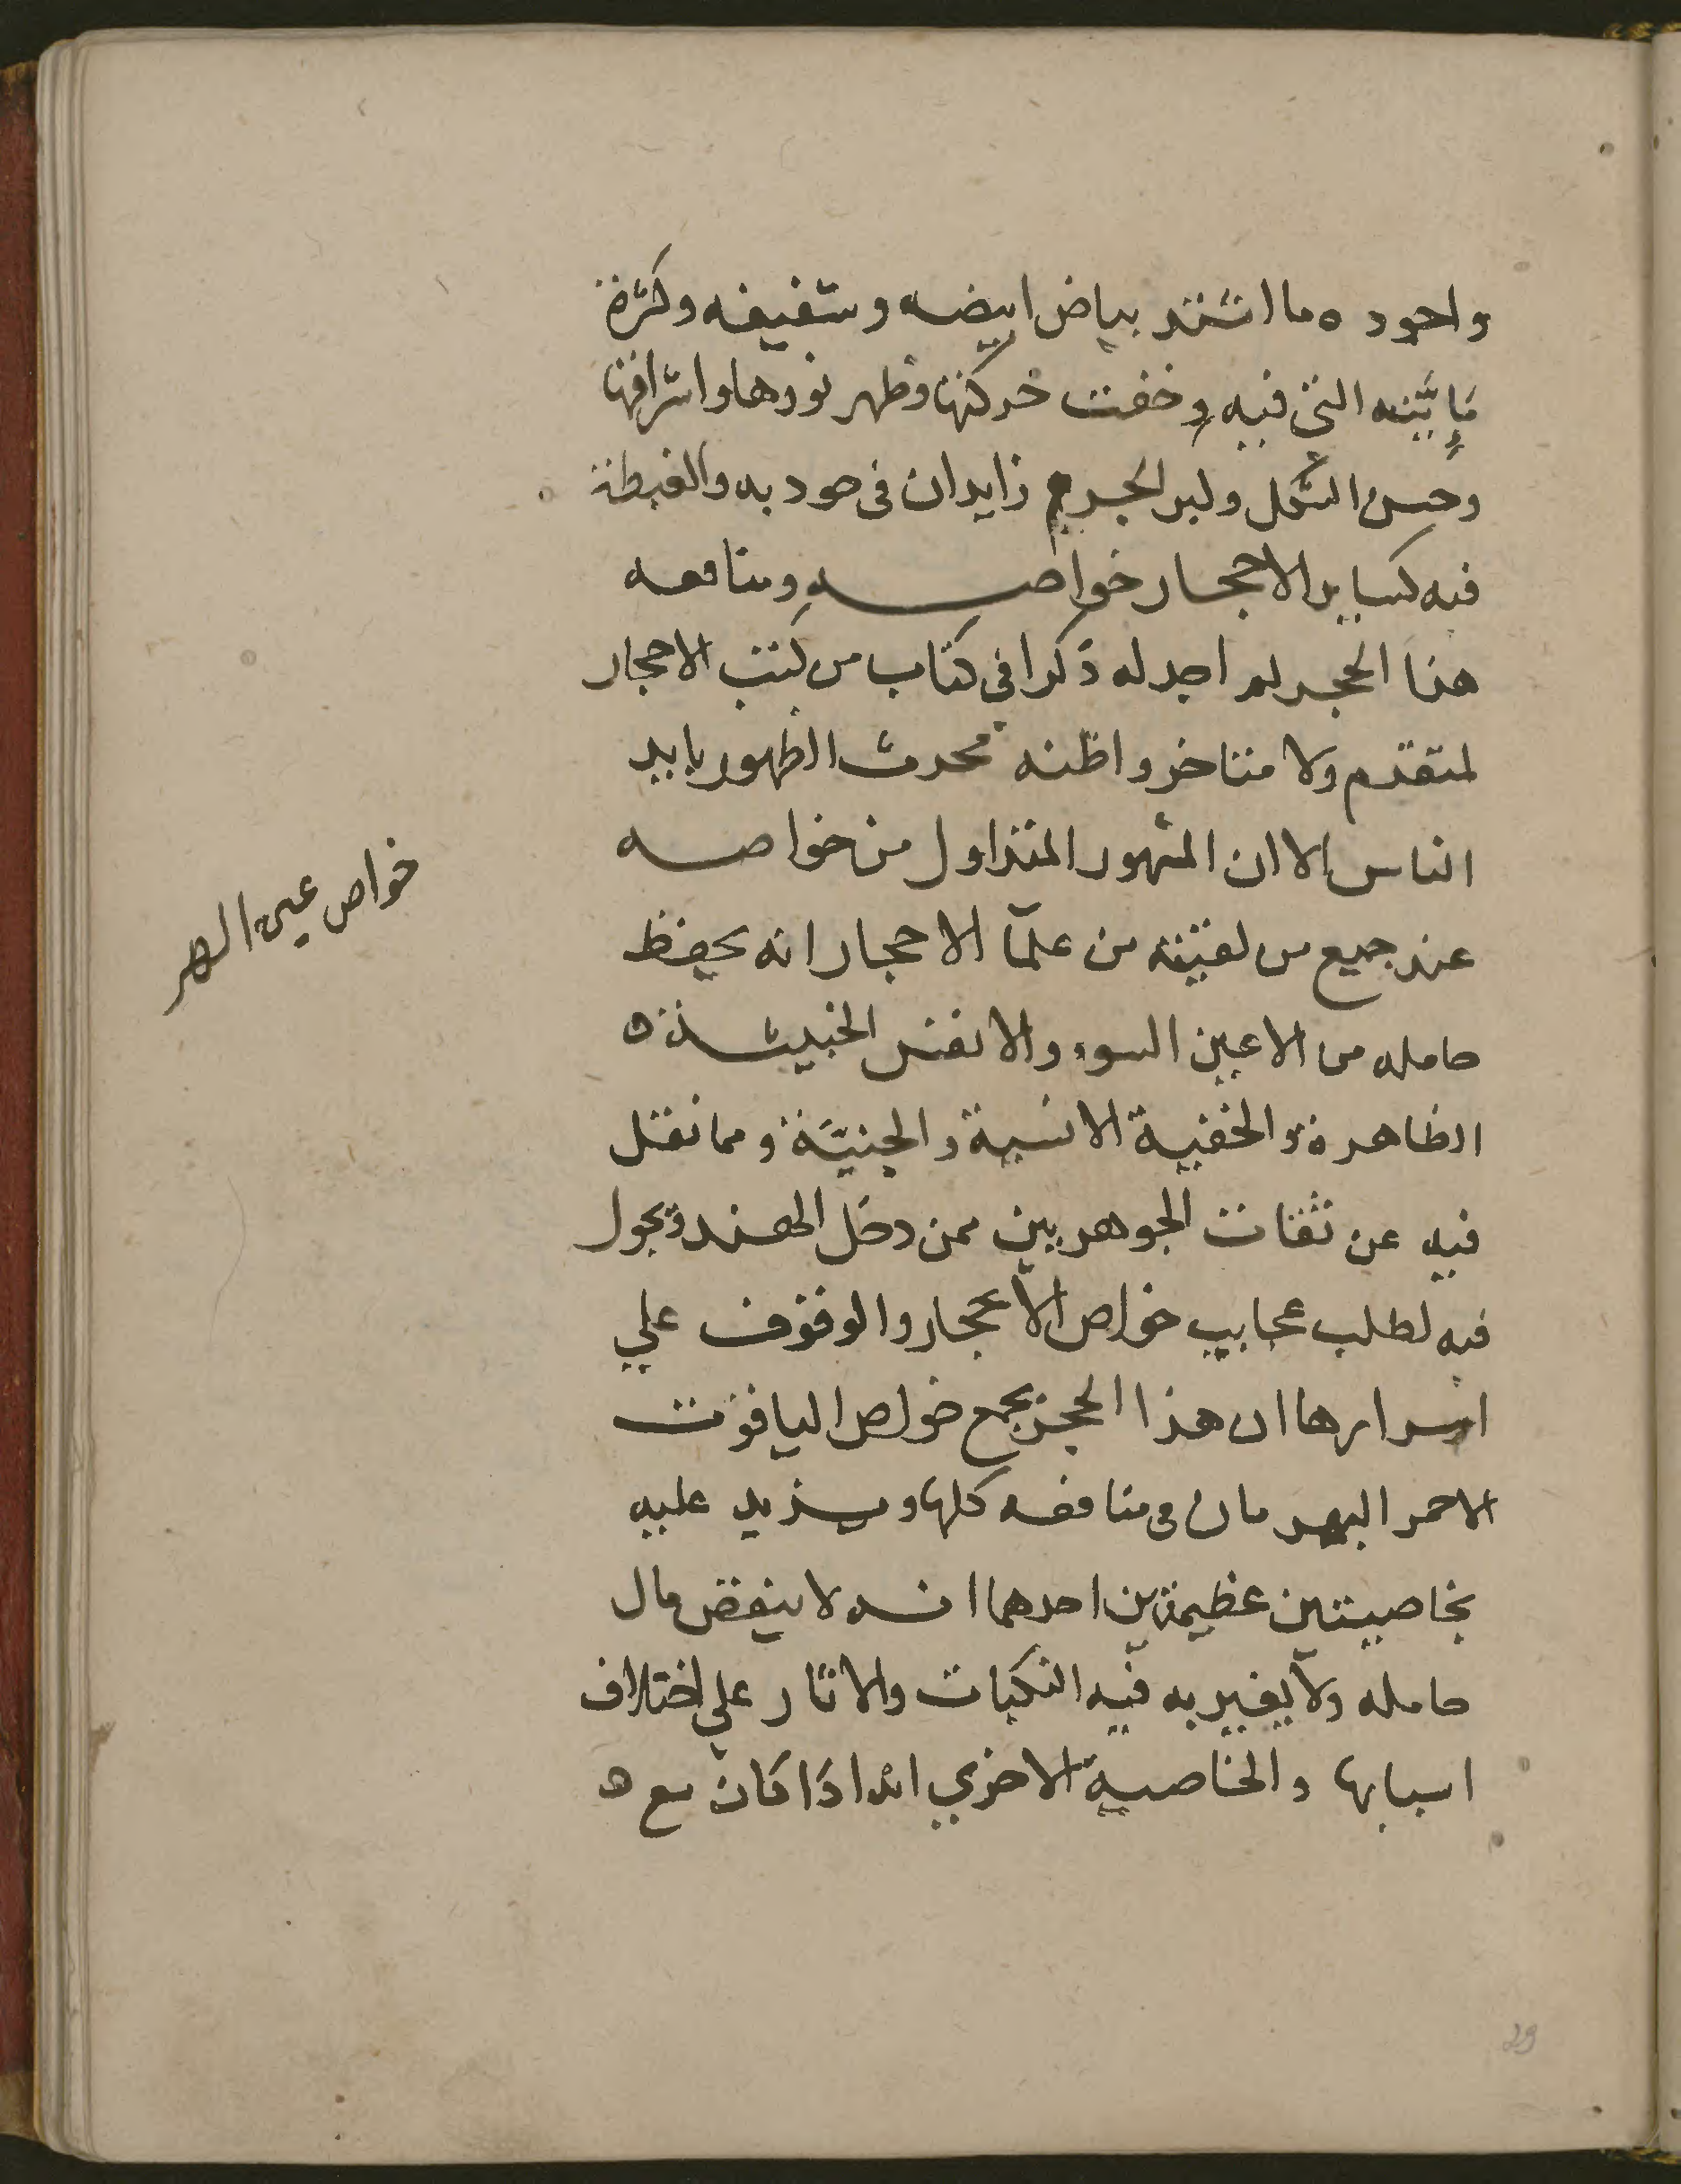 واجوده ما اشتد بياض ابيضه وشفيفه وكثرة
مايته التي فيه وخفت حركتها وظهر نورها واشراقها
وحسن الشكل وكبر الجرم زايدان في جودته والغبطة
فيه كساير الاحجار خواصه ومنافعه
هذا الحجر لم اجد له ذكرا في كتاب من كتب الاحجار
لمتقدم ولا متاخر واظنه محدث الظهور بايد
الناس الا ان المشهور المتداول من خواصه
عند جميع من لقيته من علمآ الاحجار انه يحفظ
حامله من الاعين السوء والانفس الخبيثة
الظاهرة والخفية الانسية والجنيّة ومما نقل
فيه عن ثقات الجوهريين ممن دخل الهند وتجول
فيه لطلب عجايب خواص الاحجار والوقوف علي
اسرارها ان هذا الحجر يجمع خواص الياقوت
الاحمر البهرمان في منافعه كلها ويزيد عليه
بخاصيتين عظيمتين احدهما انه لا ينقص مال
حامله ولا يغير به فيه النكبات والاثار علي اختلاف
اسبابها والخاصية الاخري انه اذا كان مع
خواص عين الهر
29